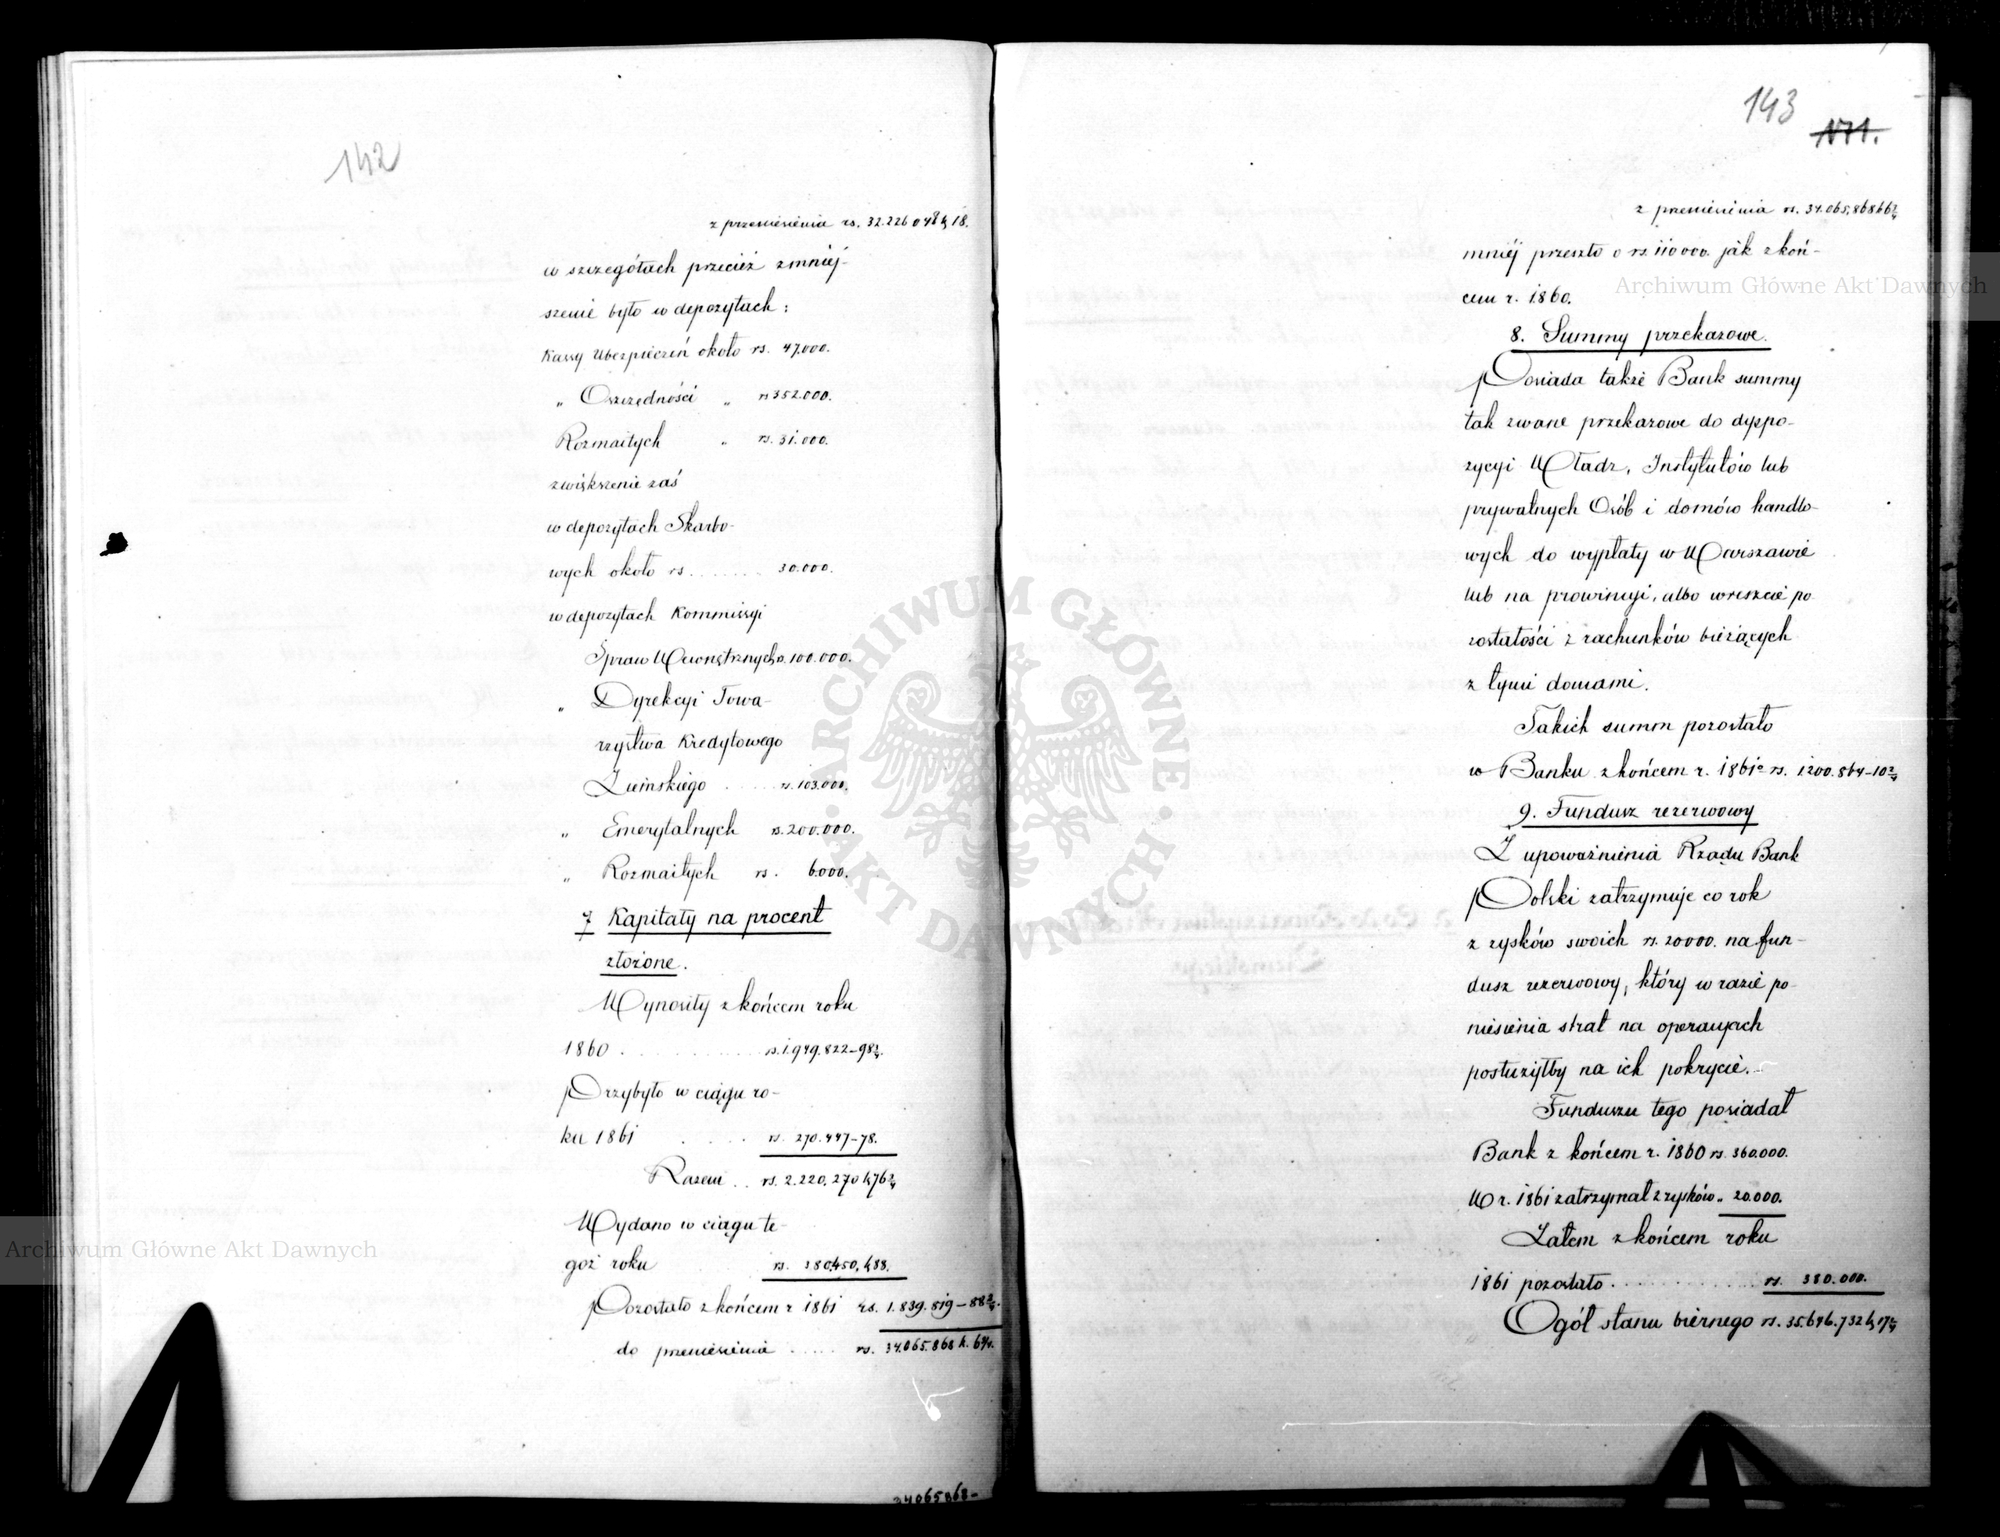 142
z przeniesienia rs. 32.226048 k 18.
w szczegółach przecież zmniej-
szenie było w depozytach:
Kassy Ubezpieczeń około rs. 47.000.
„ Oszczędności „ rs 352.000.
Rozmaitych „ rs. 31.000.
zwiększenie zaś
w depozytach Skarbo-
wych około rs ....... 30.000.
w depozytach Kommissyi
Spraw Wewnętrznych rs. 100.000.
„ Dyrekcyi Towa-
rzystwa Kredytowego
Ziemskiego ..... rs. 103.000.
„ Emerytalnych rs. 200.000.
„ Rozmaitych rs. 6.000.
7 Kapitały na procent
złożone.
Wynosiły z końcem roku
1860 ........... rs. 1.949.822–98¾.
Przybyło w ciągu ro-
ku 1861 ..... rs. 270.447–78.
Razem .. rs. 2.220.270 k 76¾
Wydano w ciągu te-
goż roku rs. 380.450, k 88.
Pozostało z końcem r 1861 rs. 1.839.819–88¾.
do przeniesienia ..... rs. 34.065.868 k. 6¾.
34065868–
143
171.
z przeniesienia rs. 34.065,868 k 6¾
mniéj przeszło o rs. 110000. jak z koń-
cem r. 1860.
8. Summy przekazowe.
Posiada także Bank summy
tak zwane przekazowe do dyspo-
zycyi Władz, Instytutów lub
prywatnych Osób i domów handlo-
wych do wypłaty w Warszawie
lub na prowincyi, albo wreszcie po
zostałości z rachunków bieżących
z tymi domami.
Takich summ pozostało
w Banku z końcem r. 1861 rs. 1.200.864–10¾
9. Fundusz rezerwowy
Z upoważnienia Rządu Bank
Polski zatrzymuje co rok
z zysków swoich rs. 20000. na fun-
dusz rezerwowy, który w razie po-
niesienia strat na operacyach
posłużyłby na ich pokrycie.
Funduszu tego posiadał
Bank z końcem r. 1860 rs. 360.000.
W r. 1861 zatrzymał z zysków „ 20.000.
Zatem z końcem roku
1861 pozostało ............ rs. 380.000.
Ogół stanu biernego rs. 35.646.732 k 17¼
Archiwum Główne Akt Dawnych
Archiwum Główne Akt Dawnych
ARCHIWUM GŁÓWNE AKT DAWNYCH